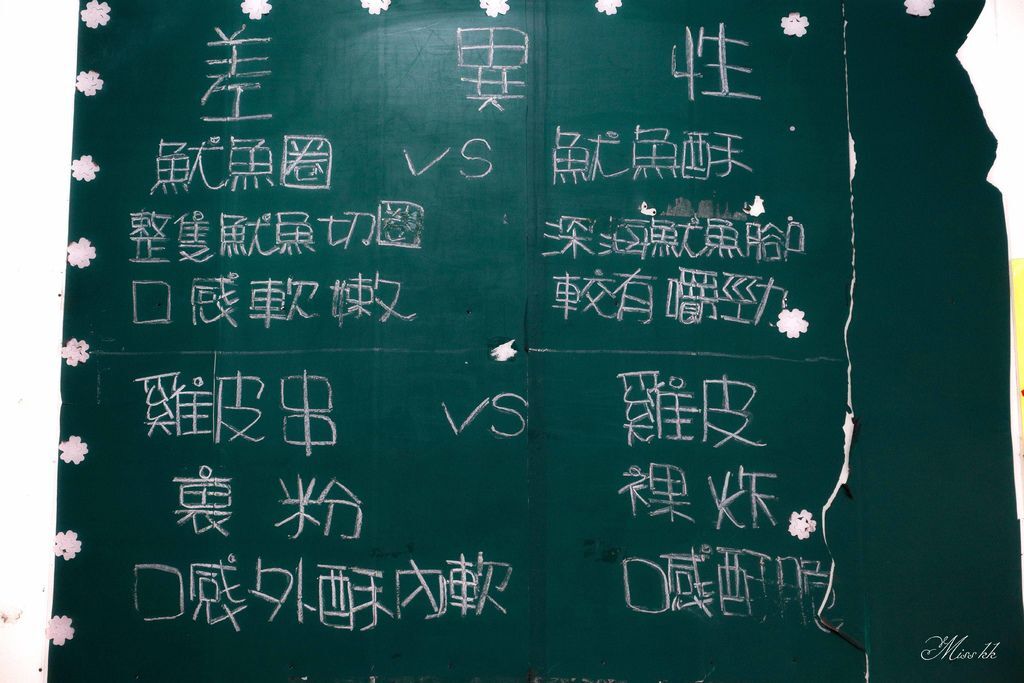 差異性
魷魚圈 VS 魷魚酥
整隻魷魚切圈 深海魷魚腳
口感軟嫩 較有嚼勁
雞皮串 VS 雞皮
裹粉 裸炸
口感外酥內軟 口感酥脆
Miss kk